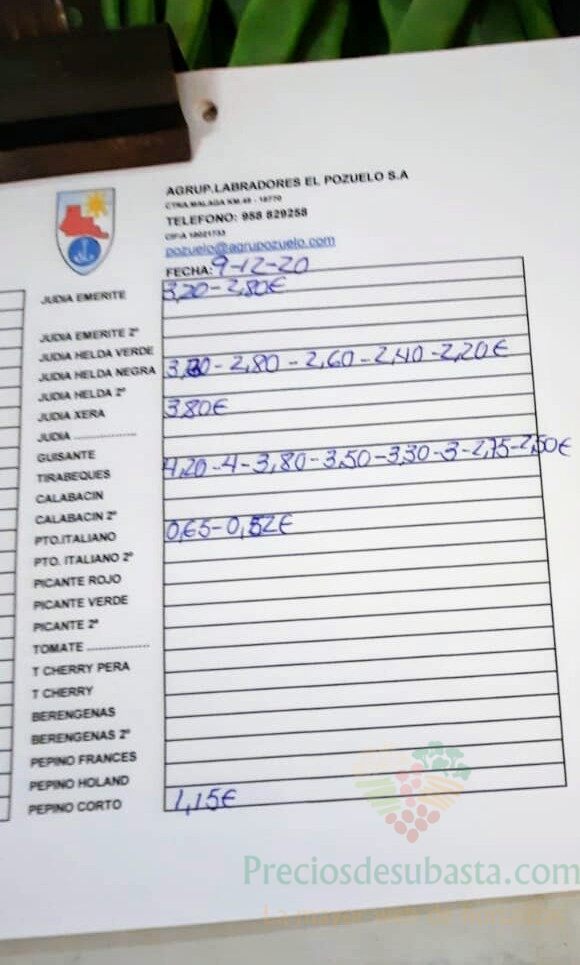 AGRUP.LABRADORES EL POZUELO S.A
CTRA MALAGA KM.48 - 18770
TELEFONO: 958 829258
CIF:A 18021733
pozuelo@agrupozuelo.com
FECHA: 9-12-20
JUDIA EMERITE 3,20-2,80€
JUDIA EMERITE 2ª
JUDIA HELDA VERDE
JUDIA HELDA NEGRA - 2,80 - 2,60 - 2,40 - 2,20€
JUDIA HELDA 2ª
JUDIA XERA 3.80€
JUDIA ..................
GUISANTE
TIRABEQUES 4,20-4-3,80-3,50-3,30-3-2,75-2,50€
CALABACIN
CALABACIN 2ª
PTO.ITALIANO 0,65-0,52€
PTO. ITALIANO 2ª
PICANTE ROJO
PICANTE VERDE
PICANTE 2ª
TOMATE ..................
T CHERRY PERA
T CHERRY
BERENGENAS
BERENGENAS 2ª
PEPINO FRANCES
PEPINO HOLAND
PEPINO CORTO 1,15€
Preciosdesubasta.com